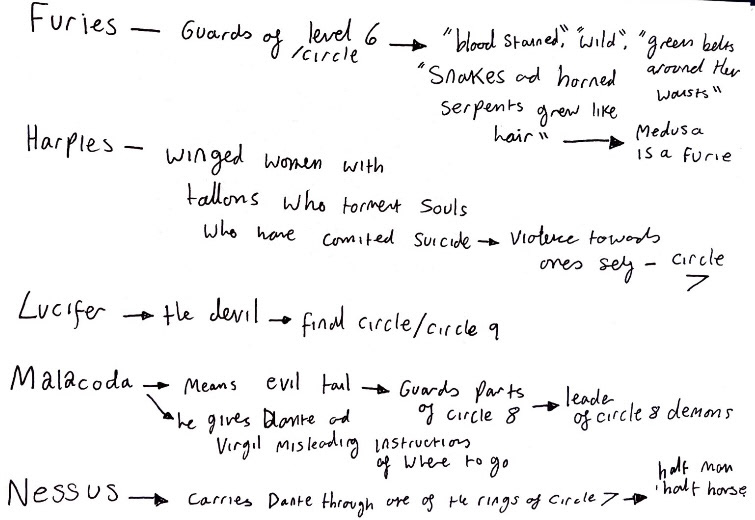 Furies — Guards of level 6 → "blood stained", "wild", "green belts
/circle around their
waists"
"Snakes ad horned
serpents grew like
hair" → Medusa
is a Furie
Harpies — winged women with
tallons who torment souls
who have comited suicide → violence towards
ones self — circle
7
Lucifer → the devil → final circle/circle 9
Malacoda → Means evil tail → Guards parts
of circle 8 → leader
of circle 8 demons
he gives Dante ad
Virgil misleading instructions
of where to go
Nessus → Carries Dante through one of the rings of circle 7 → half man
'half horse